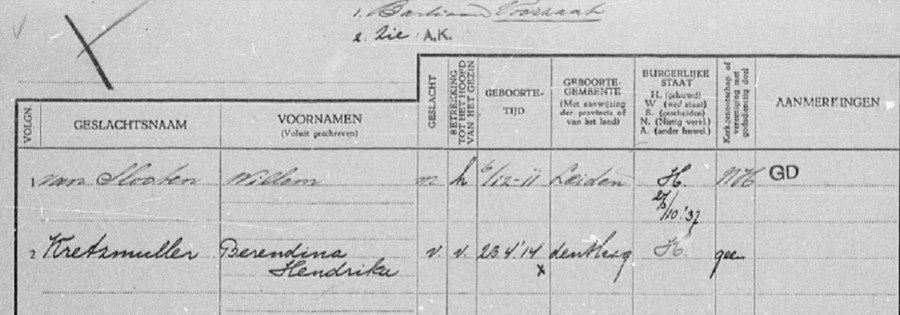 1. Bastiaan Vossaat
2. Zie A.K.
VOLGN. GESLACHTSNAAM VOORNAMEN (Voluit geschreven) GESLACHT BETREKKING TOT HET HOOFD VAN HET GEZIN GEBOORTE-TIJD GEBOORTE-GEMEENTE (Met aanwijzing der provincie of van het land) BURGERLIJKE STAAT H. (gehuwd) W (wed staat) S. (gescheiden) N. (Nietig verkl.) A. (ander huwel.) Kerkgenootschap of vereeniging met godsdienstig doel AANMERKINGEN
1 van Slooten Willem m h 6/12-11 Leiden H. NH GD
27/10.'37
2 Kretzmuller Berendina v. v. 23.4'14 den Haag H. geen
Hendrika x